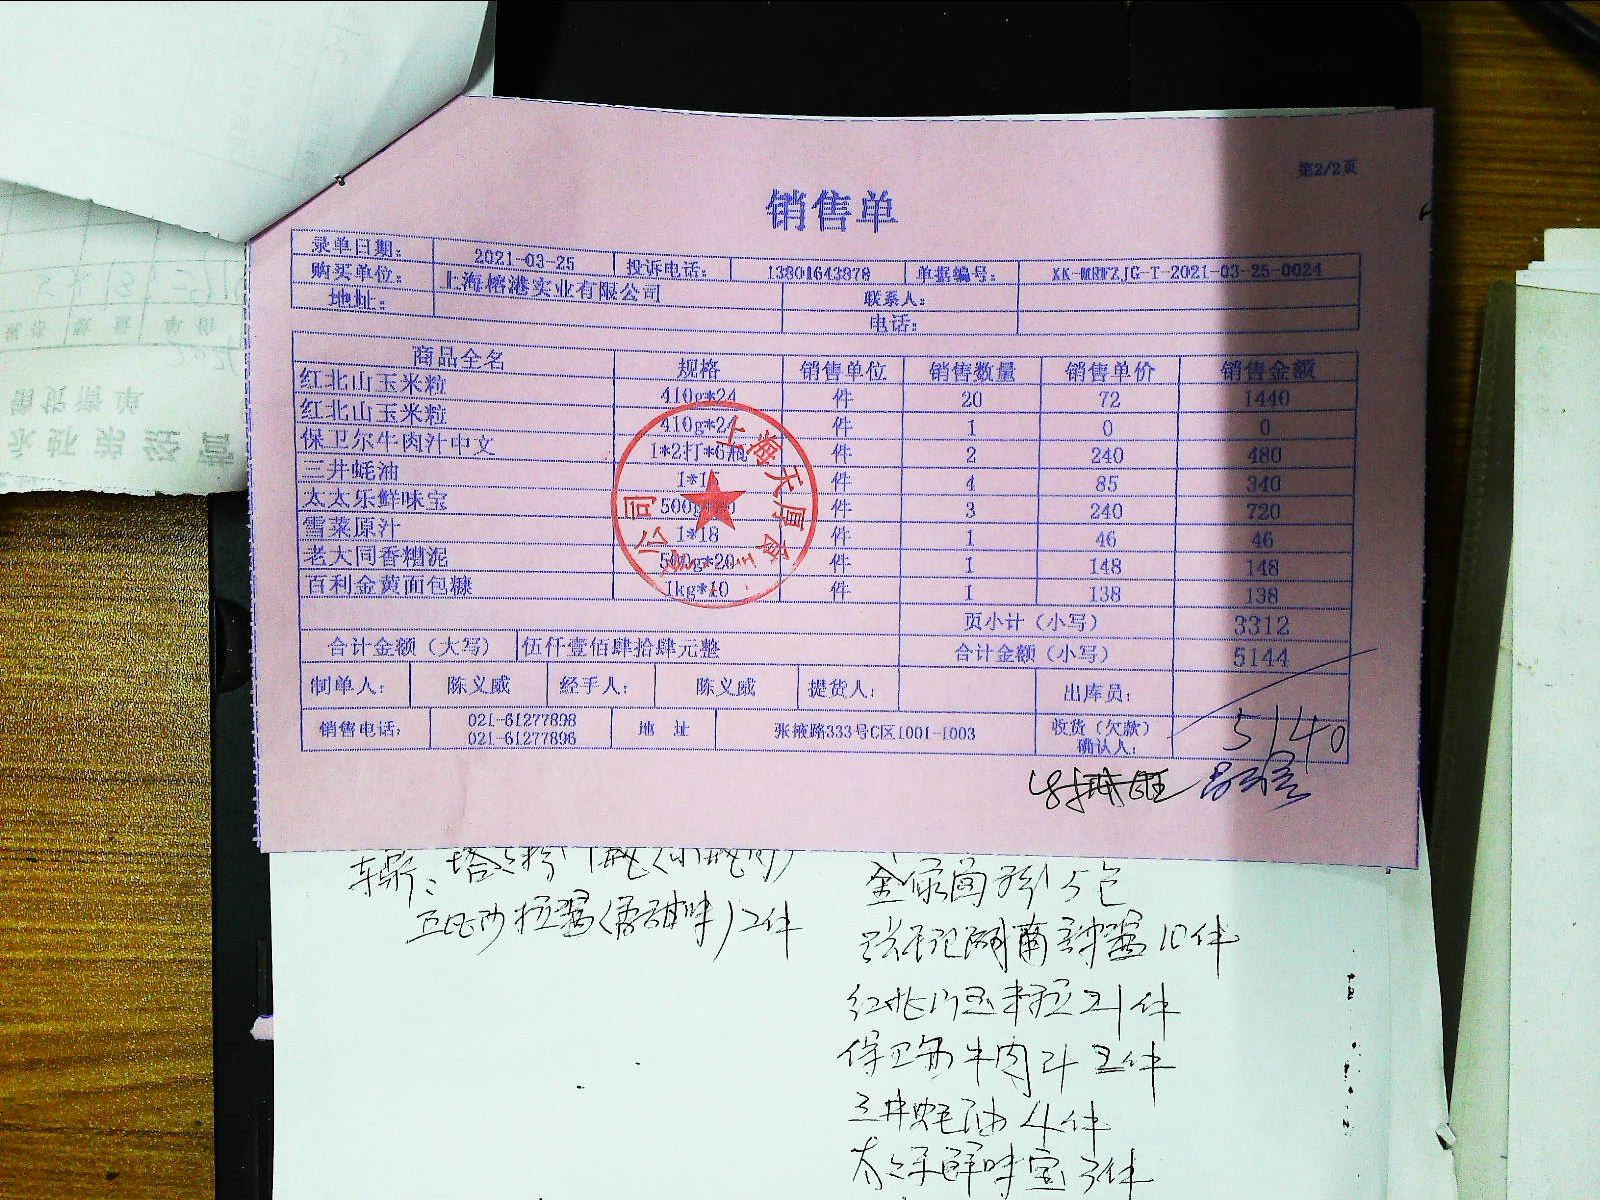 第2/2页
销售单
录单日期： 2021-03-25 投诉电话： 13801643878 单据编号： XK-MRFZJG-T-2021-03-25-0024
购买单位： 上海榕港实业有限公司 联系人：
地址： 电话：
商品全名 规格 销售单位 销售数量 销售单价 销售金额
红北山玉米粒 410g*24 件 20 72 1440
红北山玉米粒 410g*24 件 1 0 0
保卫尔牛肉汁中文 1*2打*6瓶 件 2 240 480
三井蚝油 1*15 件 4 85 340
太太乐鲜味宝 件 3 240 720
雪菜原汁 1*18 件 1 46 46
老大同香糟泥 500g*20 件 1 148 148
百利金黄面包糠 1kg*10 件 1 138 138
页小计（小写） 3312
合计金额（大写） 伍仟壹佰肆拾肆元整 合计金额（小写） 5144
制单人： 陈义威 经手人： 陈义威 提货人： 出库员：
销售电话： 021-61277898 地 址 张掖路333号C区1001-1003 收货（欠款）
021-61277896 确认人：
5140
上海天厚食 公司
金绿菌 5包
湖南辣酱 10件
红北山玉米粒 21件
保卫尔牛肉汁 2件
三井蚝油 4件
太太乐鲜味宝 3件
沙拉酱（香甜味）2件